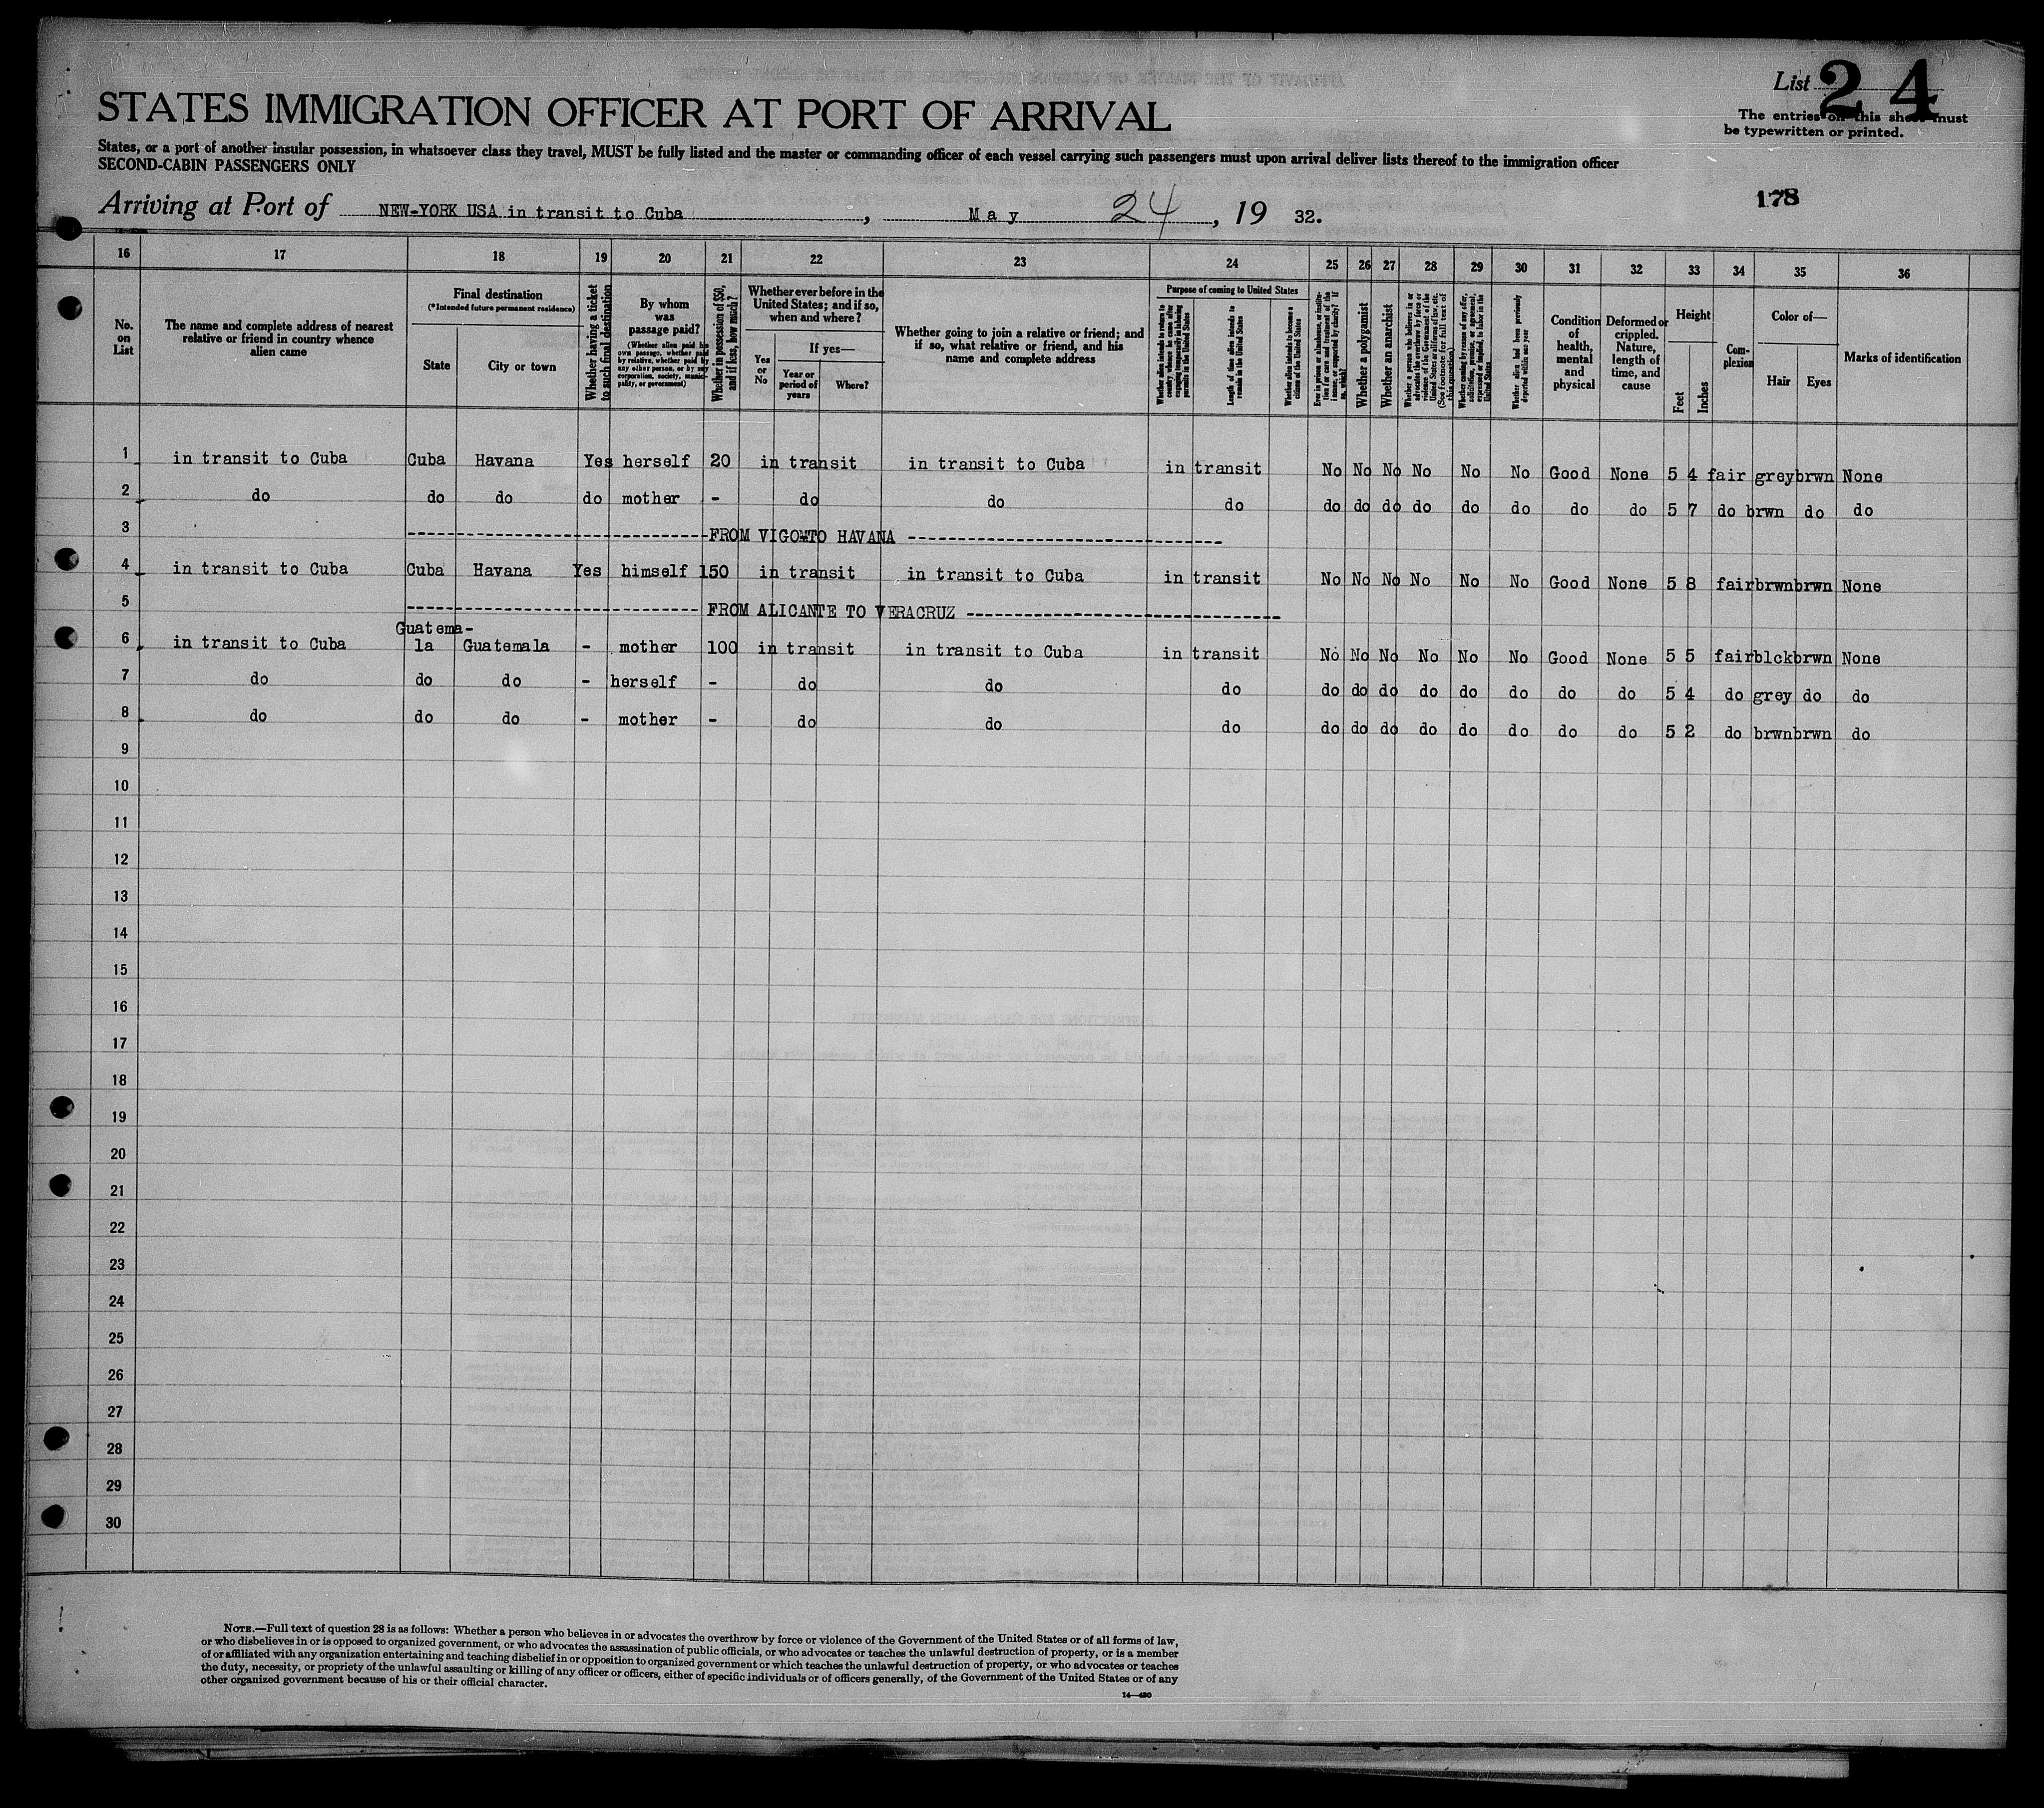 List 24
STATES IMMIGRATION OFFICER AT PORT OF ARRIVAL
The entries on this sheet must
be typewritten or printed.
States, or a port of another insular possession, in whatsoever class they travel, MUST be fully listed and the master or commanding officer of each vessel carrying such passengers must upon arrival deliver lists thereof to the immigration officer
SECOND-CABIN PASSENGERS ONLY
178
Arriving at Port of NEW-YORK USA in transit to Cuba, May 24, 19 32.
16 17 18 19 20 21 22 23 24 25 26 27 28 29 30 31 32 33 34 35 36
No. on List
The name and complete address of nearest relative or friend in country whence alien came
Final destination
(*Intended future permanent residence)
State
City or town
Whether having a ticket to such final destination
By whom was passage paid?
(Whether alien paid his own passage, whether paid by relative, whether paid by any other person, or by any corporation, society, munic-ipality, or government)
Whether in possession of $50, and if less, how much?
Whether ever before in the United States; and if so, when and where?
Yes or No
If yes—
Year or period of years
Where?
Whether going to join a relative or friend; and if so, what relative or friend, and his name and complete address
Purpose of coming to United States
Length of time alien intends to remain in the United States
Whether alien intends to become a citizen of the United States
Whether a polygamist
Whether an anarchist
Whether alien had been previously deported within one year
Condition of health, mental and physical
Deformed or crippled. Nature, length of time, and cause
Height
Feet
Inches
Com-plexion
Color of—
Hair
Eyes
Marks of identification
1 in transit to Cuba Cuba Havana Yes herself 20 in transit in transit to Cuba in transit No No No No No No Good None 5 4 fair grey brwn None
2 do do do do mother - do do do do do do do do do do do 5 7 do brwn do do
3 ------------------------------FROM VIGO-TO HAVANA ------------------------------
4 in transit to Cuba Cuba Havana Yes himself 150 in transit in transit to Cuba in transit No No No No No No Good None 5 8 fair brwn brwn None
5 ----------------------------- FROM ALICANTE TO VERACRUZ --------------------------------
Guatema-
6 in transit to Cuba la Guatemala - mother 100 in transit in transit to Cuba in transit No No No No No No Good None 5 5 fair blck brwn None
7 do do do - herself - do do do do do do do do do do do 5 4 do grey do do
8 do do do - mother - do do do do do do do do do do do 5 2 do brwn brwn do
9
10
11
12
13
14
15
16
17
18
19
20
21
22
23
24
25
26
27
28
29
30
NOTE.—Full text of question 28 is as follows: Whether a person who believes in or advocates the overthrow by force or violence of the Government of the United States or of all forms of law,
or who disbelieves in or is opposed to organized government, or who advocates the assassination of public officials, or who advocates or teaches the unlawful destruction of property, or is a member
of or affiliated with any organization entertaining and teaching disbelief in or opposition to organized government or which teaches the unlawful destruction of property, or who advocates or teaches
the duty, necessity, or propriety of the unlawful assaulting or killing of any officer or officers, either of specific individuals or of officers generally, of the Government of the United States or of any
other organized government because of his or their official character.
14—430